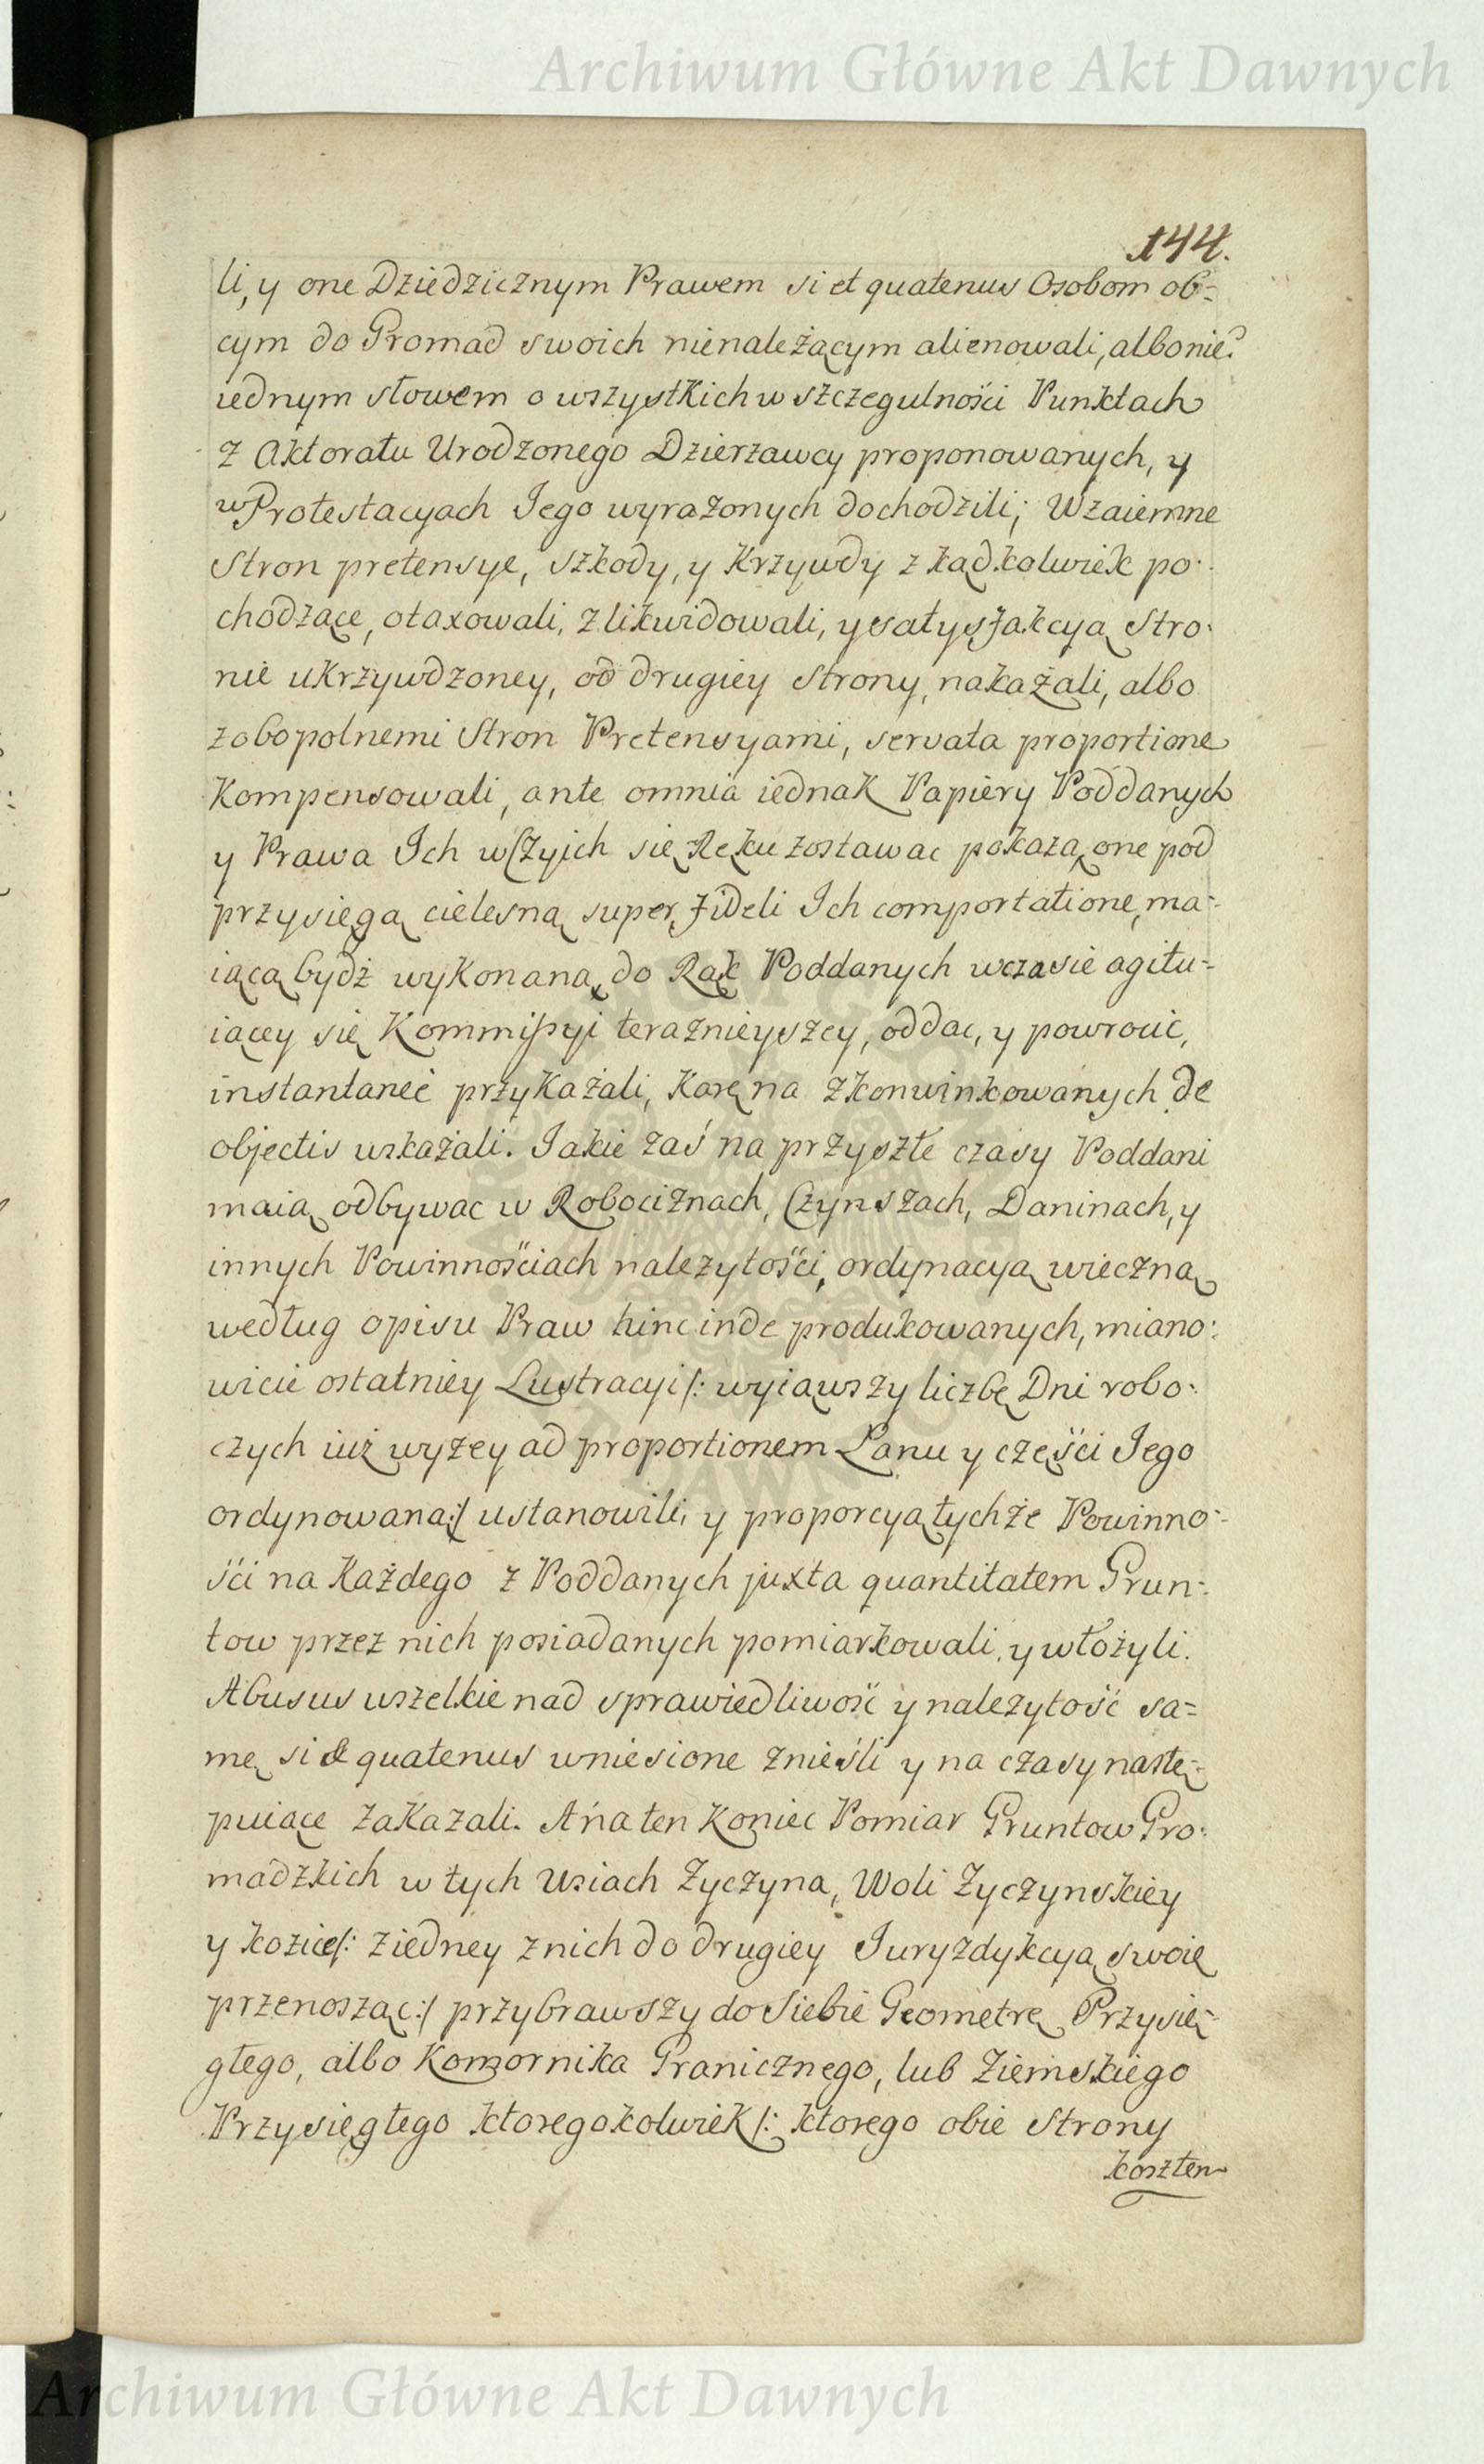 Archiwum Główne Akt Dawnych
144.
li, y one Dziedzicznym Prawem si et quatenus Osobom ob=
cym do Gromad swoich nienależącym alienowali, albo nie?
iednym słowem o wszystkich w szczegulności Punktach
z Aktoratu Urodzonego Dzierzawcy proponowanych, y
w Protestacyach Jego wyrażonych dochodzili; Wzaiemne
Stron pretensye, szkody, y Krzywdy z kądkolwiek po-
chodzące, otaxowali, zlikwidowali, y satysfakcyą Stro-
nie ukrzywdzoney, od drugiey Strony, nakażali, albo
zobopolnemi Stron Pretensyami, servata proportione
Kompensowali, ante omnia iednak Papiery Poddanych
y Prawa Ich w czyich się Ręku zostawac pokażą, one pod
przysięgą cielesną super fideli Ich comportatione, ma-
iącą bydż wykonaną, do Rąk Poddanych w czasie agitu-
iącey się Kommissyi terażnieyszey, oddac, y powrocic,
instantaneé przykażali, Karę na zkonwinkowanych de
objectis wskażali. Jakie zaś na przyszłe czasy Poddani
maią odbywac w Robociznach, Czynszach, Daninach, y
innych Powinnościach należytości, ordynacyą wieczną
według opisu Praw hinc inde produkowanych, miano-
wicie ostatniey Lustracyi /: wyiąwszy liczbę Dni robo-
czych iuż wyżey ad proportionem Łanu y części Jego
ordynowaną :/ ustanowili, y proporcyą tychże Powinno-
ści na Każdego z Poddanych juxta quantitatem Grun-
tow przez nich posiadanych pomiarkowali, y włożyli.
Abusus wszelkie nad sprawiedliwość y należytość sa=
mę si et quatenus wniesione znieśli y na czasy nastę-
puiące zakazali. A na ten Koniec Pomiar Gruntow Gro-
madzkich w tych Wsiach Zyczyna, Woli Zyczynskiey
y kozice /: z iedney z nich do drugiey Juryzdykcyą swoię
przenosząc :/ przybrawszy do Siebie Geometrę Przysię-
głego, albo Komornika Granicznego, lub Ziemskiego
Przysięgłego ktoregokolwiek /: ktorego obie Strony
kosztem
Archiwum Główne Akt Dawnych